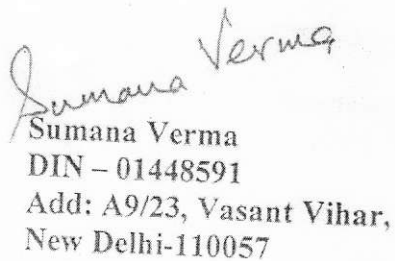 Sumana Verma
Sumana Verma
DIN – 01448591
Add: A9/23, Vasant Vihar,
New Delhi-110057